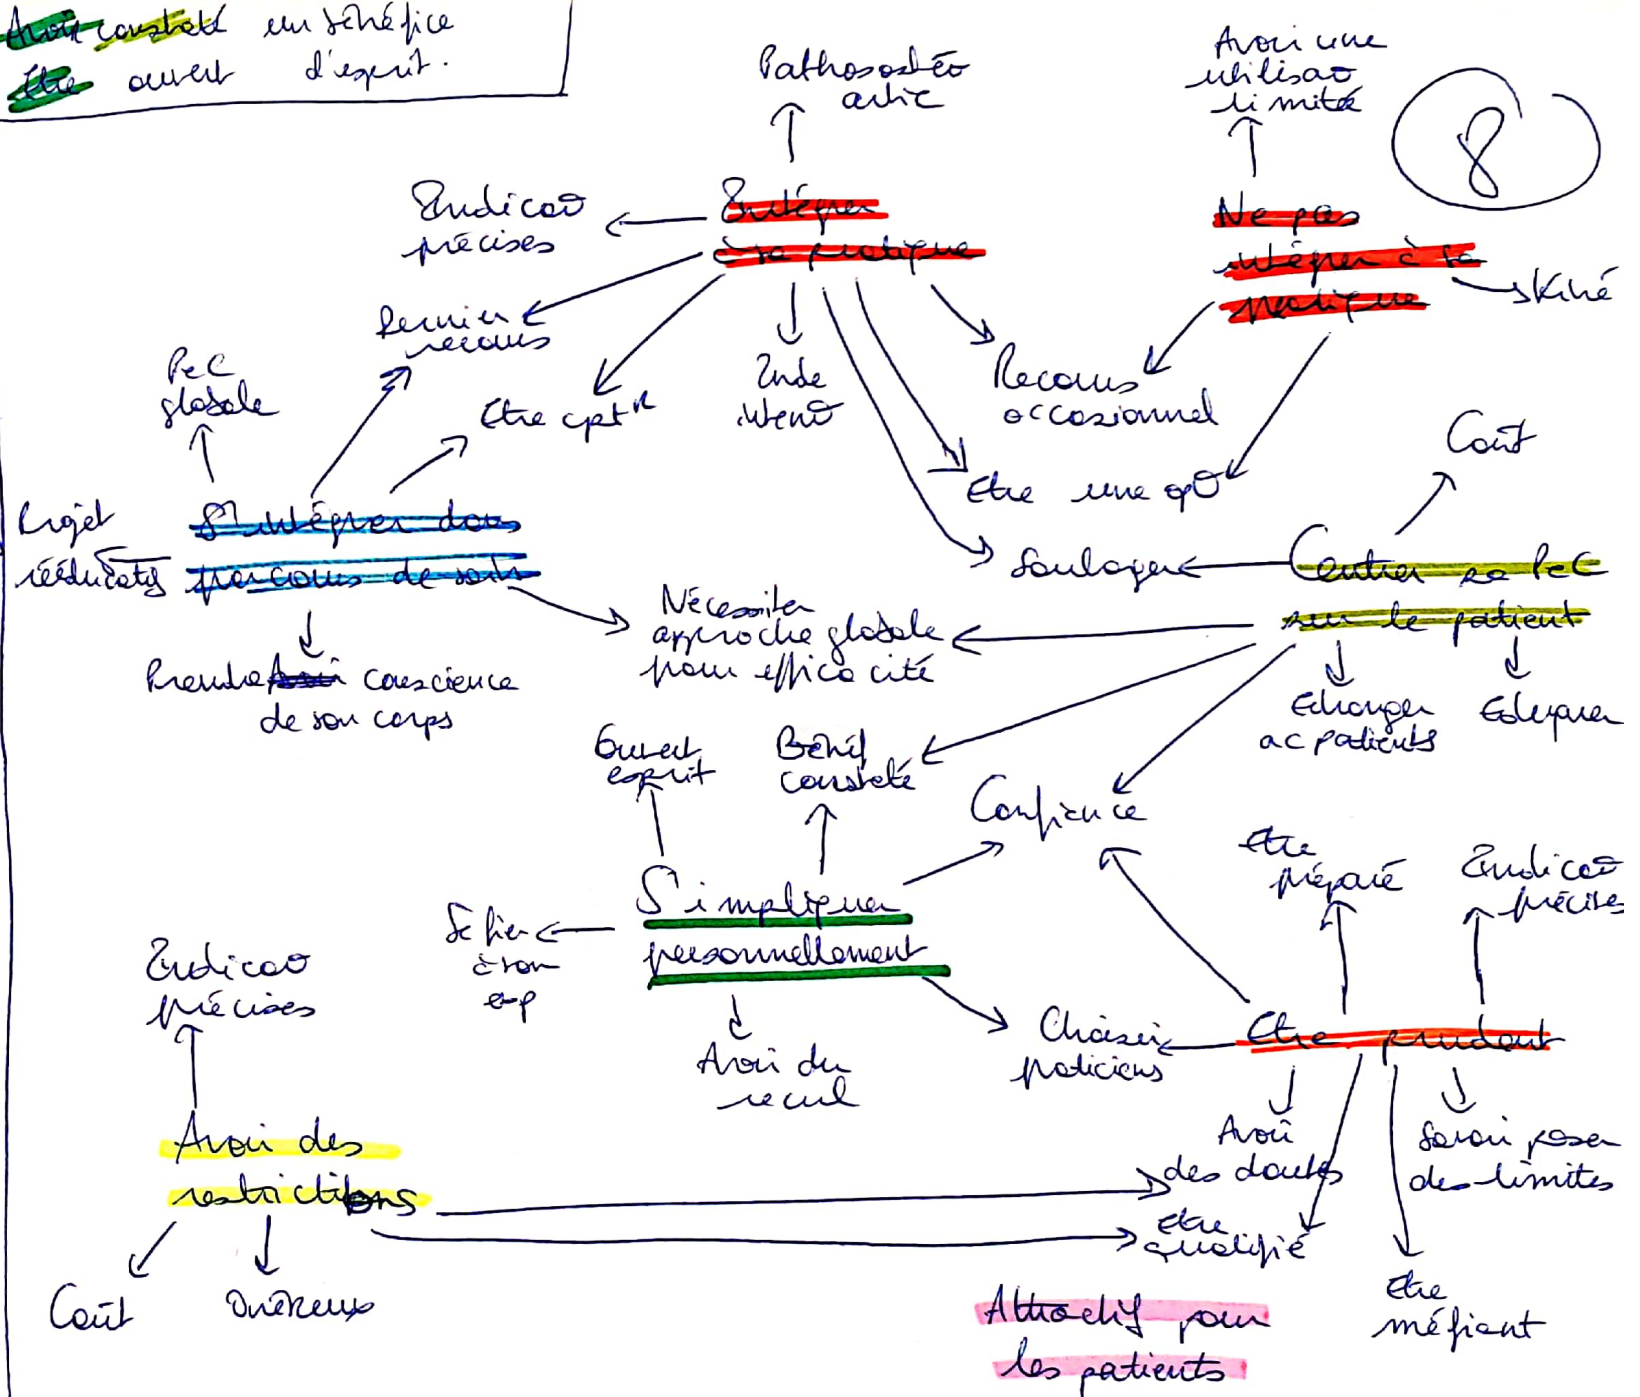 Avoir constaté un bénéfice
Etre ouvert d'esprit.
8
Pathosostéo
artic
Avoir une
utilisaō
limitée
Indicaō
précises
Intégrer
à sa pratique
Ne pas
intégrer à sa
pratique
Kiné
Dernier
recours
PeC
globale
Etre cptR
2nde
intenō
Recours
occasionnel
Coût
Etre une opō
Projet
rééducatif
S'intégrer dans
parcours de soin
Soulager
Centrer sa PeC
sur le patient
Nécessiter
approche globale
pour efficacité
Prendre conscience
de son corps
Echanger
ac patients
Eduquer
Ouvert
esprit
Bénéf
constaté
Confience
Etre
préparé
Indicaō
précises
S'impliquer
personnellement
Se fier
à son
exp
Indicaō
précises
Avoir du
recul
Choisir
praticiens
Etre prudent
Avoir des
restrictions
Avoir
des doutes
Savoir poser
des limites
Etre
qualifié
Coût
Onéreux
Etre
méfiant
Attractif pour
les patients